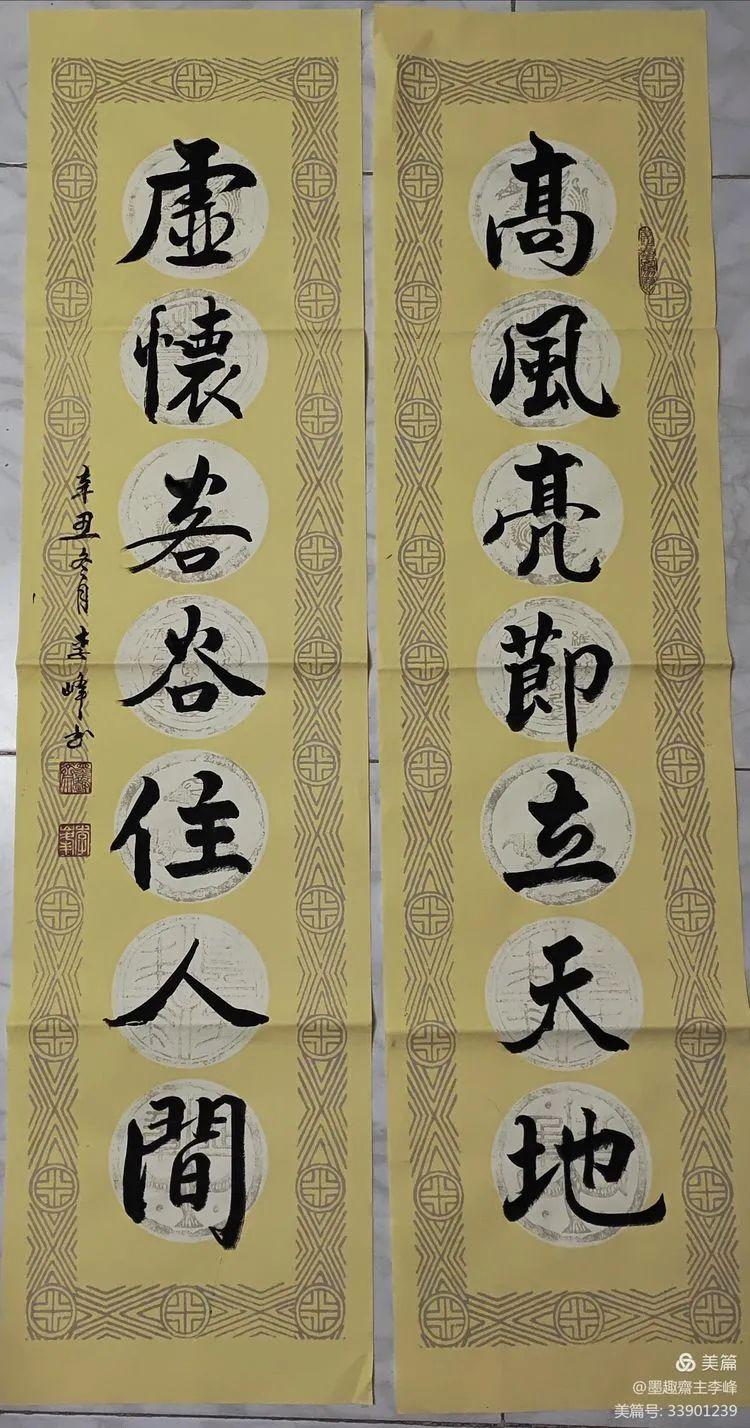 高風亮節立天地
虛懷若谷住人間
辛丑冬月李峰书
美篇
@墨趣齋主李峰
美篇号: 33901239